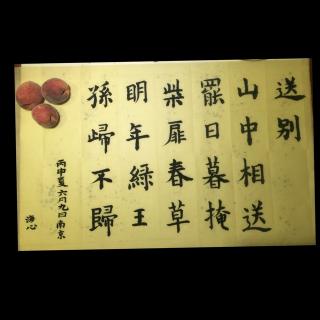 送别
山中相送
罷日暮掩
柴扉春草
明年綠王
孫歸不歸
丙申夏六月九日南京
海心